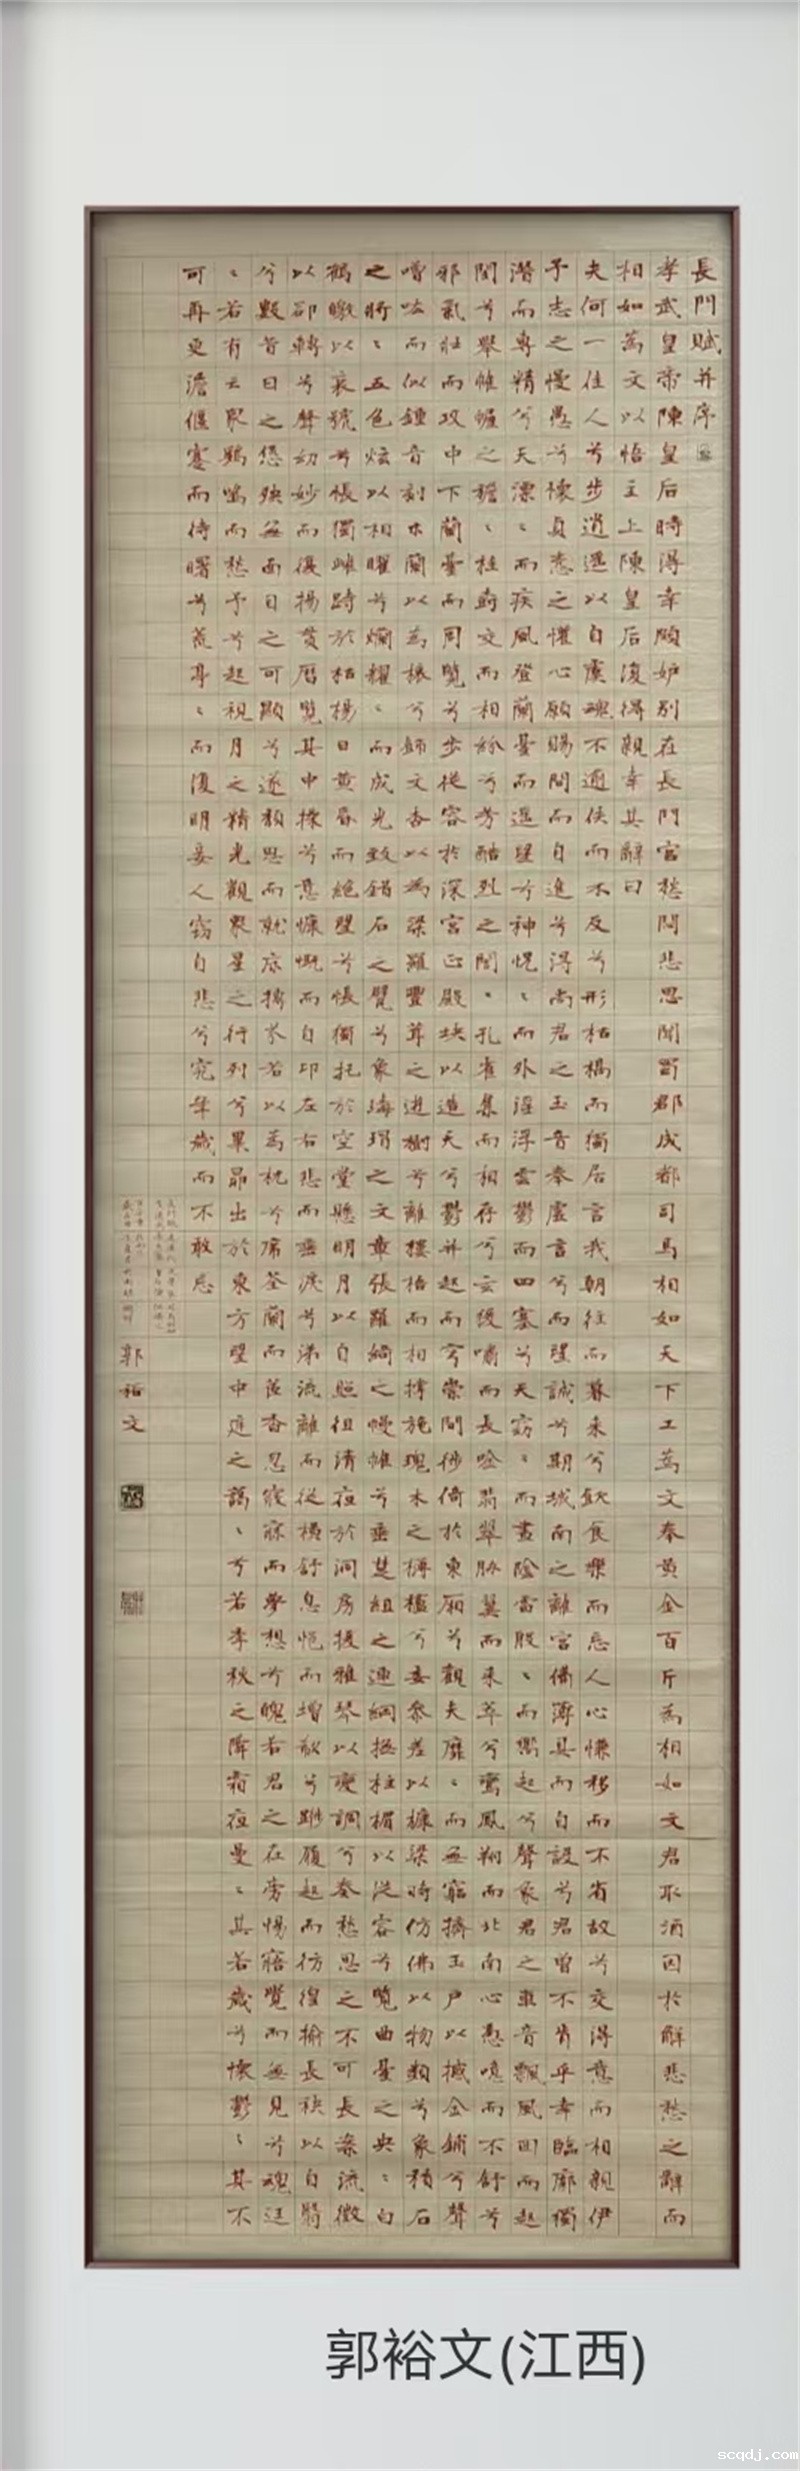 長門賦并序
孝武皇帝陳皇后時得幸頗妒別在長門宮愁悶悲思聞蜀郡成都司馬相如天下工為文奉黃金百斤為相如文君取酒因於解悲愁之辭而
相如為文以悟主上陳皇后復得親幸其辭曰
夫何一佳人兮步逍遙以自虞魂不逾佚而不反兮形枯槁而獨居言我朝往而暮來兮飲食樂而忘人心慊移而不省故兮交得意而相親伊
予志之慢愚兮懷貞愨之懽心願賜問而自進兮得尚君之玉音奉虛言兮而望誠兮期城南之離宮脩薄具而自設兮君曾不肯乎幸臨廓獨
潛而專精兮天漂〻而疾風登蘭臺而遥望兮神怳〻而外淫浮雲鬱而四塞兮天窈〻而晝陰雷殷〻而響起兮聲象君之車音飄風回而起
閨兮舉帷幄之襜〻桂樹交而相紛兮芳酷烈之誾〻孔雀集而相存兮玄猨嘯而長吟翡翠脅翼而來萃兮鸞鳳翔而北南心憑噫而不舒兮
邪氣壯而攻中下蘭臺而周覽兮步從容於深宮正殿塊以造天兮鬱并起而穹崇間徙倚於東廂兮觀夫靡〻而無窮擠玉戶以撼金鋪兮聲
噌吰而似鍾音刻木蘭以為榱兮飾文杏以為梁羅豐茸之遊樹兮離樓梧而相撐施瑰木之欂櫨兮委參差以槺梁時仿佛以物類兮象積石
之將〻五色炫以相曜兮爛耀〻而成光致錯石之甓兮象瑇瑁之文章張羅綺之幔帷兮垂楚組之連綱撫柱楣以從容兮覽曲臺之央〻白
鶴噭以哀號兮悵獨雌跱於枯楊日黃昏而絕望兮悵獨托於空堂懸明月以自照徂清夜於洞房援雅琴以變調兮奏愁思之不可長案流徵
以卻轉兮聲幼妙而復揚貫歷覽其中操兮意慷慨而自卬左右悲而垂淚兮涕流離而從橫舒息悒而增欷兮蹝履起而彷徨揄長袂以自翳
兮數昔日之愆殃無面目之可顯兮遂頹思而就床摶芬若以為枕兮席荃蘭而茝香忽寢寐而夢想兮魄若君之在旁惕寤覺而無見兮魂迋
〻若有亡眾雞鳴而愁予兮起視月之精光觀眾星之行列兮畢昴出於東方望中庭之藹〻兮若季秋之降霜夜曼〻其若歲兮懷鬱〻其不
可再更澹偃蹇而待曙兮荒亭〻而復明妾人竊自悲兮究年歲而不敢忘
郭裕文
郭裕文(江西)
scqdj.com